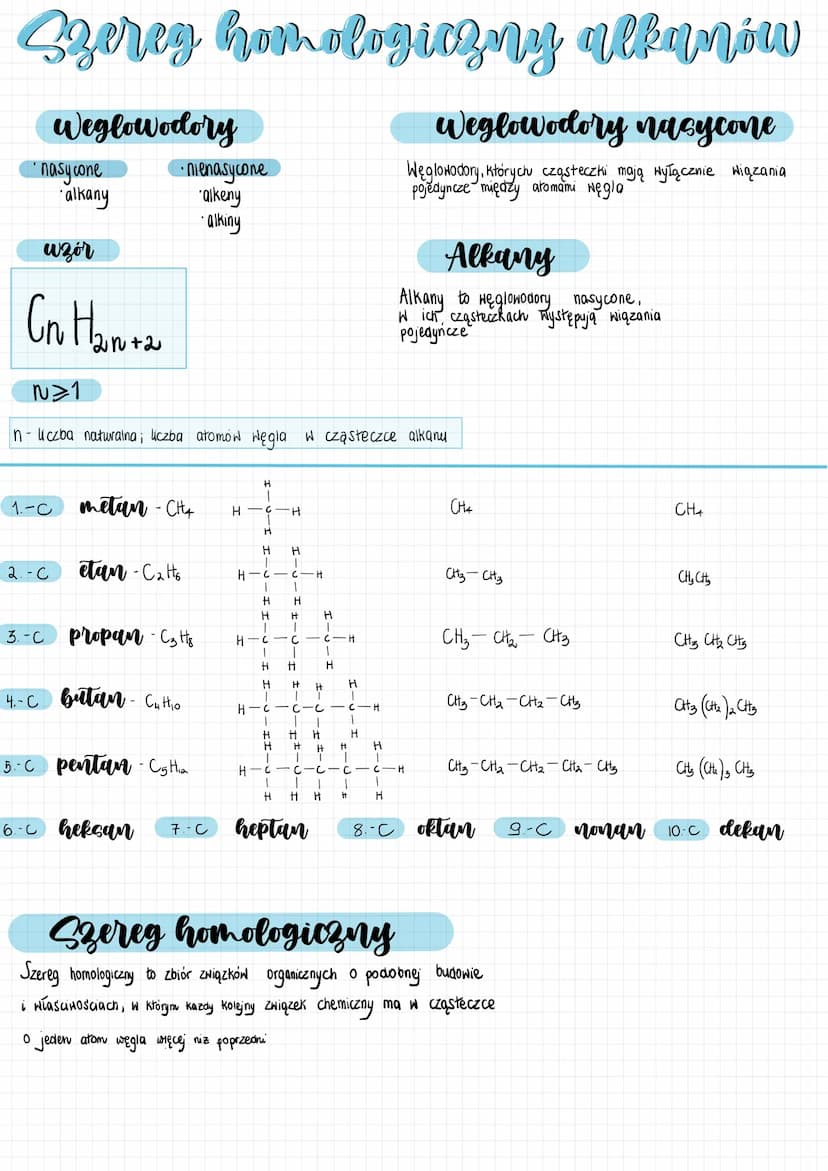 Szereg homologiczny alkanów
Węglowodory
· nasycone
· nienasycone
· alkany
· alkeny
· alkiny
wzór
CnH2n+2
n⩾1
n - liczba naturalna; liczba atomów węgla w cząsteczce alkanu
Węglowodory nasycone
Węglowodory, których cząsteczki mają wyłącznie wiązania
pojedyncze między atomami węgla
Alkany
Alkany to węglowodory nasycone,
w ich cząsteczkach występują wiązania
pojedyńcze
1.-C metan - CH4
H
H-C-H
H
CH4
CH4
2.-C etan - C2H6
H H
H-C-C-H
H H
CH3-CH3
CH3CH3
3.-C propan - C3H8
H H H
H-C-C-C-H
H H H
CH3-CH2-CH3
CH3 CH2 CH3
4.-C butan - C4H10
H H H H
H-C-C-C-C-H
H H H H
CH3-CH2-CH2-CH3
CH3(CH2)2CH3
5.-C pentan - C5H12
H H H H H
H-C-C-C-C-C-H
H H H H H
CH3-CH2-CH2-CH2-CH3
CH3(CH2)3CH3
6.-C heksan 7.-C heptan 8.-C oktan 9.-C nonan 10.-C dekan
Szereg homologiczny
Szereg homologiczny to zbiór związków organicznych o podobnej budowie
i własciwościach, w którym kazdy kolejny związek chemiczny ma w cząsteczce
o jeden atom węgla więcej niz poprzedni